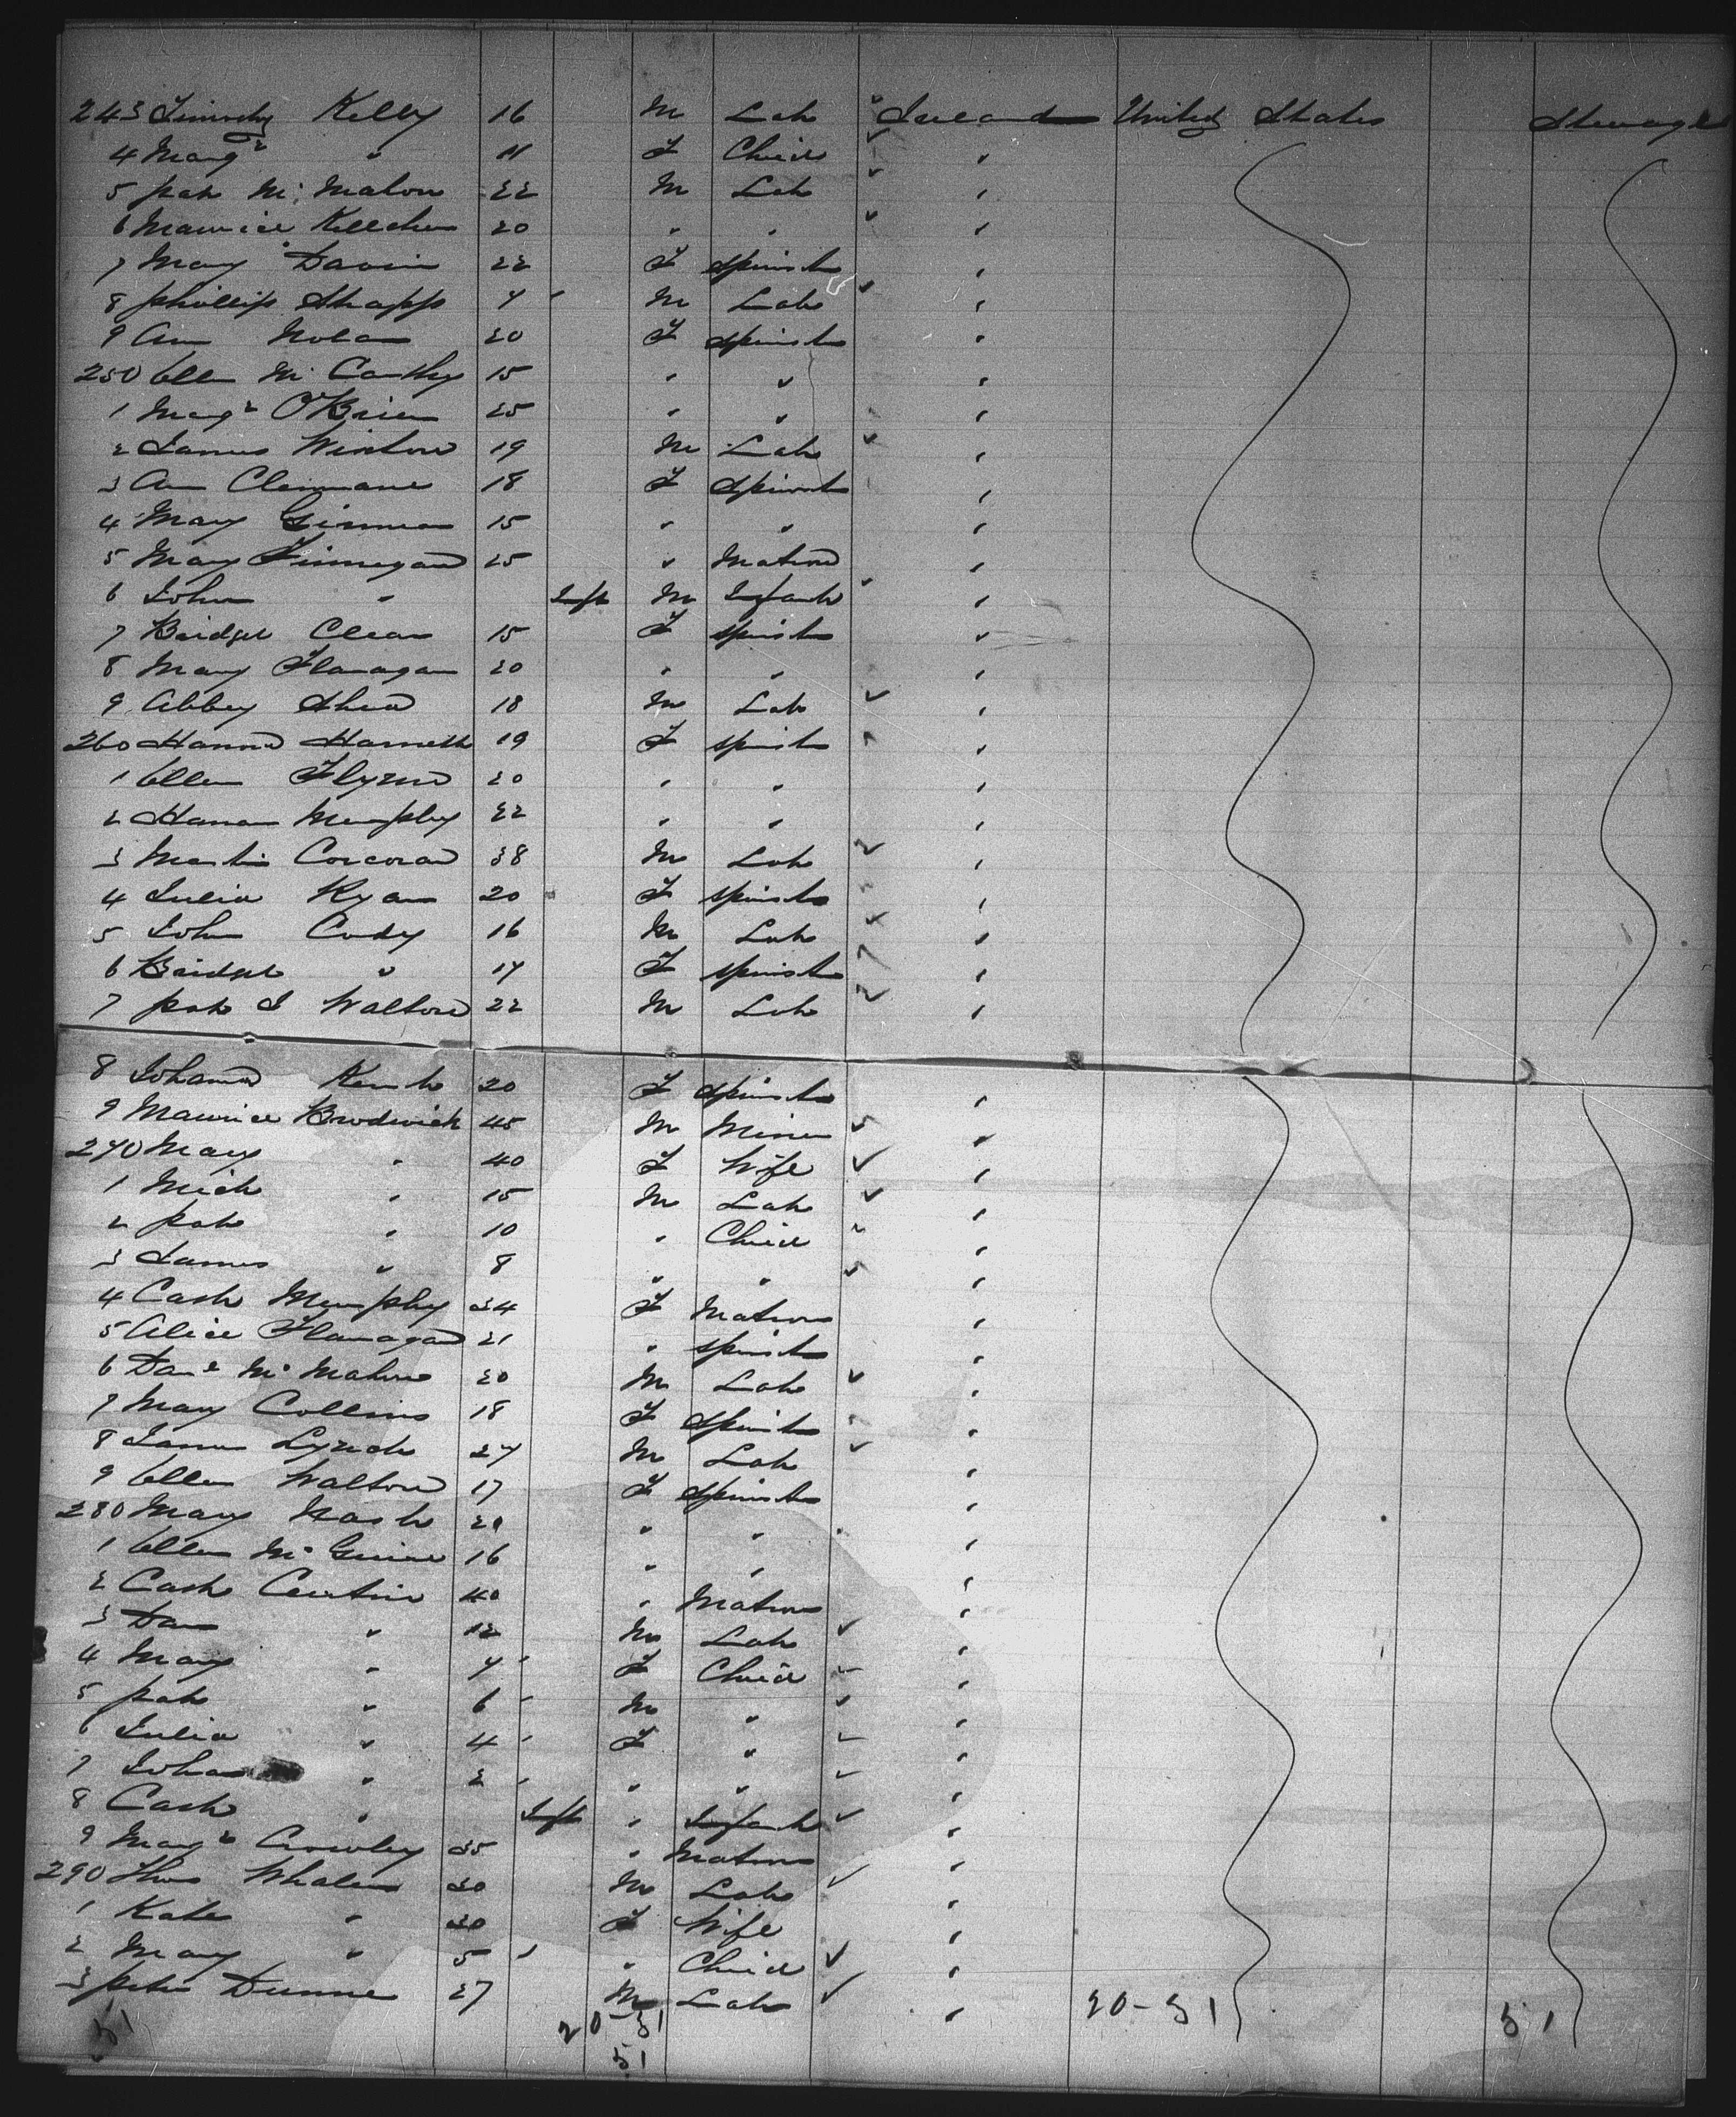 243 Timothy Kelly 16 M Lab Ireland United States Steerage
4 Margt " 11 F Child "
5 Pat Mc Mahon 22 M Lab "
6 Maurice Kelleher 20 " " "
7 Mary Davin 22 F Spinster "
8 Phillip Shapp 7 M Lab "
9 Ann Nolan 20 F Spinster "
250 Ellen Mc Carthy 15 " " "
1 Margt O'Brien 25 " " "
2 James Winston 19 M Lab "
3 Ann 18 F Spinster "
4 Mary 15 " " "
5 Mary Finnegan 25 " Matron "
6 John " Inft M Infant "
7 Bridget Clear 15 F Spinster "
8 Mary Flanagan 20 " " "
9 Abbey Shea 18 M Lab "
260 Hanna Harnett 19 F Spinster "
1 Ellen Flynn 20 " " "
2 Hanna Murphy 22 " " "
3 Martin Corcoran 38 M Lab "
4 Julia Ryan 20 F Spinster "
5 John Cody 16 M Lab "
6 Bridget " 14 F Spinster "
7 Pat J Walton 22 M Lab "
8 Johanna 20 F Spinster "
9 Maurice Brodwick 45 M Miner "
270 Mary " 40 F Wife "
1 Mich " 15 M Lab "
2 Pat " 10 " Child "
3 James " 8 " " "
4 Cath Murphy 34 F Matron "
5 Alice Flanagan 21 " Spinster "
6 Danl Mc Mahon 20 M Lab "
7 Mary Collins 18 F Spinster "
8 James Lynch 27 M Lab "
9 Ellen Walton 17 F Spinster "
280 Mary Nash 20 " " "
1 Ellen Mc Guire 16 " " "
2 Cath 40 " Matron "
3 Dan " 12 M Lab "
4 Mary " 7 F Child "
5 Pat " 6 M " "
6 Julia " 4 F " "
7 Johan " 2 " " "
8 Cath " Inft " Infant "
9 Margt Crowley 35 " Matron "
290 Thos Whalen 30 M Lab "
1 Kate " 30 F Wife "
2 Mary " 5 " Child "
3 Peter Dunne 27 M Lab "
51 20-31 20-31 51
51